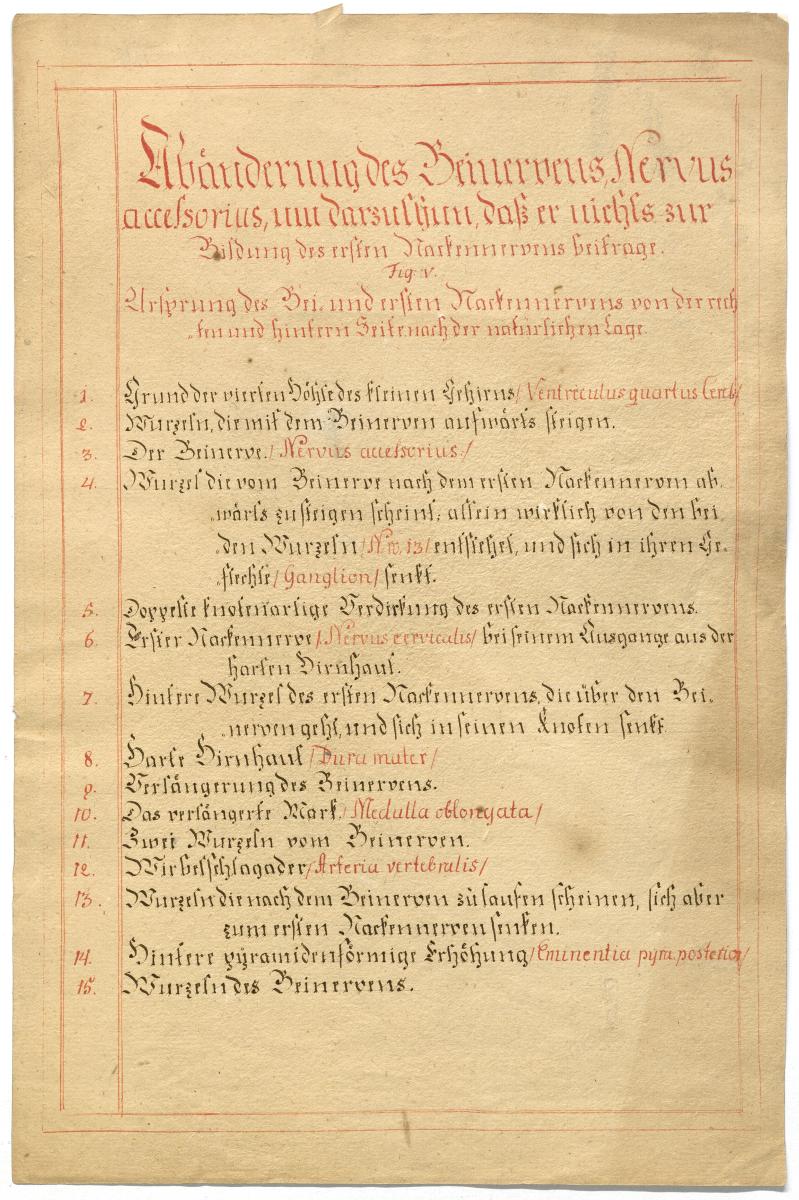 Abänderung des Beinervens, Nervus
accessorius, um darzuthun, daß er nichts zur
Bildung des ersten Nackennervens beitrage.
Fig: V.
Ursprung des Bei- und ersten Nackennervens von der rech
„ten und hintern Seite nach der natürlichen Lage.
1. Grund der vierten Höhle des kleinen Gehirns/ Ventreculus quartus Cereb/
2. Wurzeln, die mit dem Beinerven aufwärts steigen.
3. Der Beinerve./ Nervus accessorius./
4. Wurzel die vom Beinerve nach dem ersten Nackennerven ab„
„wärts zu steigen scheint; allein wirklich von den bei
„den Wurzeln /Nro, 13/ entstehet, und sich in ihren Ge„
„flechte /Ganglion/ senkt.
5. Doppelte knotenartige Verdickung des ersten Nackennervens.
6. Erster Nackennerve /Nervus cervicalis/ bei seinem Ausgange aus der
harten Hirnhaut.
7. Hintere Wurzel des ersten Nackennervens, die über den Bei„
„nerven geht, und sich in seinen Knoten senkt
8. Harte Hirnhaut /Dura mater/
9. Verlängerung des Beinervens.
10. Das verlängerte Mark /Medulla oblongata/
11. Zwei Wurzeln vom Beinerven.
12. Wirbelschlagader /Arteria vertebralis/
13. Wurzeln die nach dem Beinerven zu laufen scheinen, sich aber
zum ersten Nackennerven senken.
14. Hintere pyramidenförmige Erhöhung /Eminentia pyra. posterior/
15. Wurzeln des Beinervens.